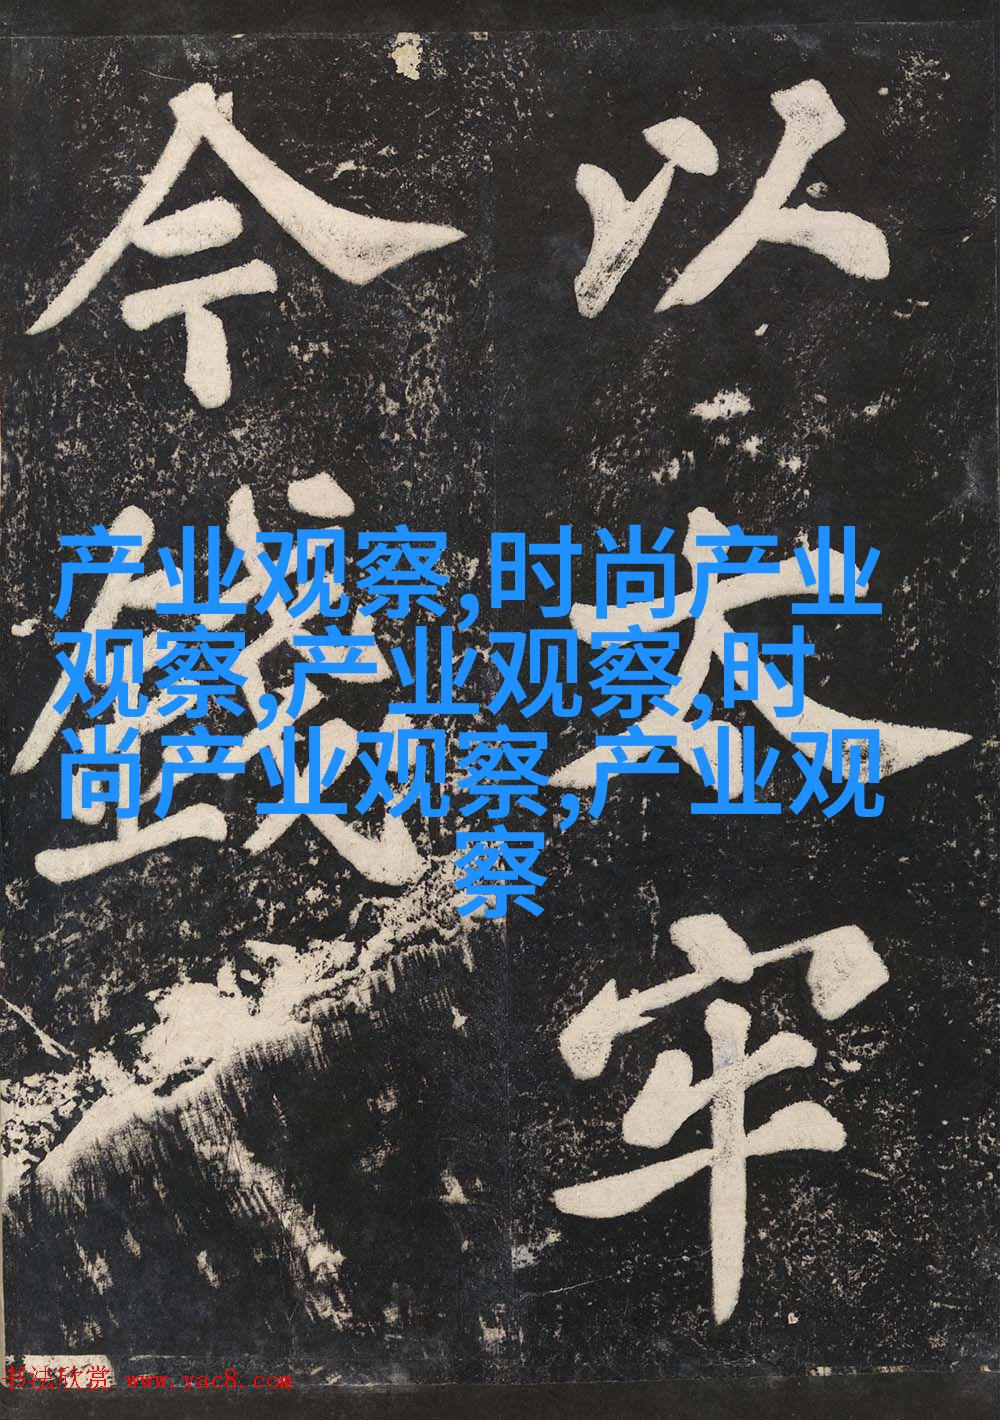 以太牢
今錢
产业观察,时尚产业
观察,产业观察,时
尚产业观察,产业观
察
书法欣赏 www.yac8.com